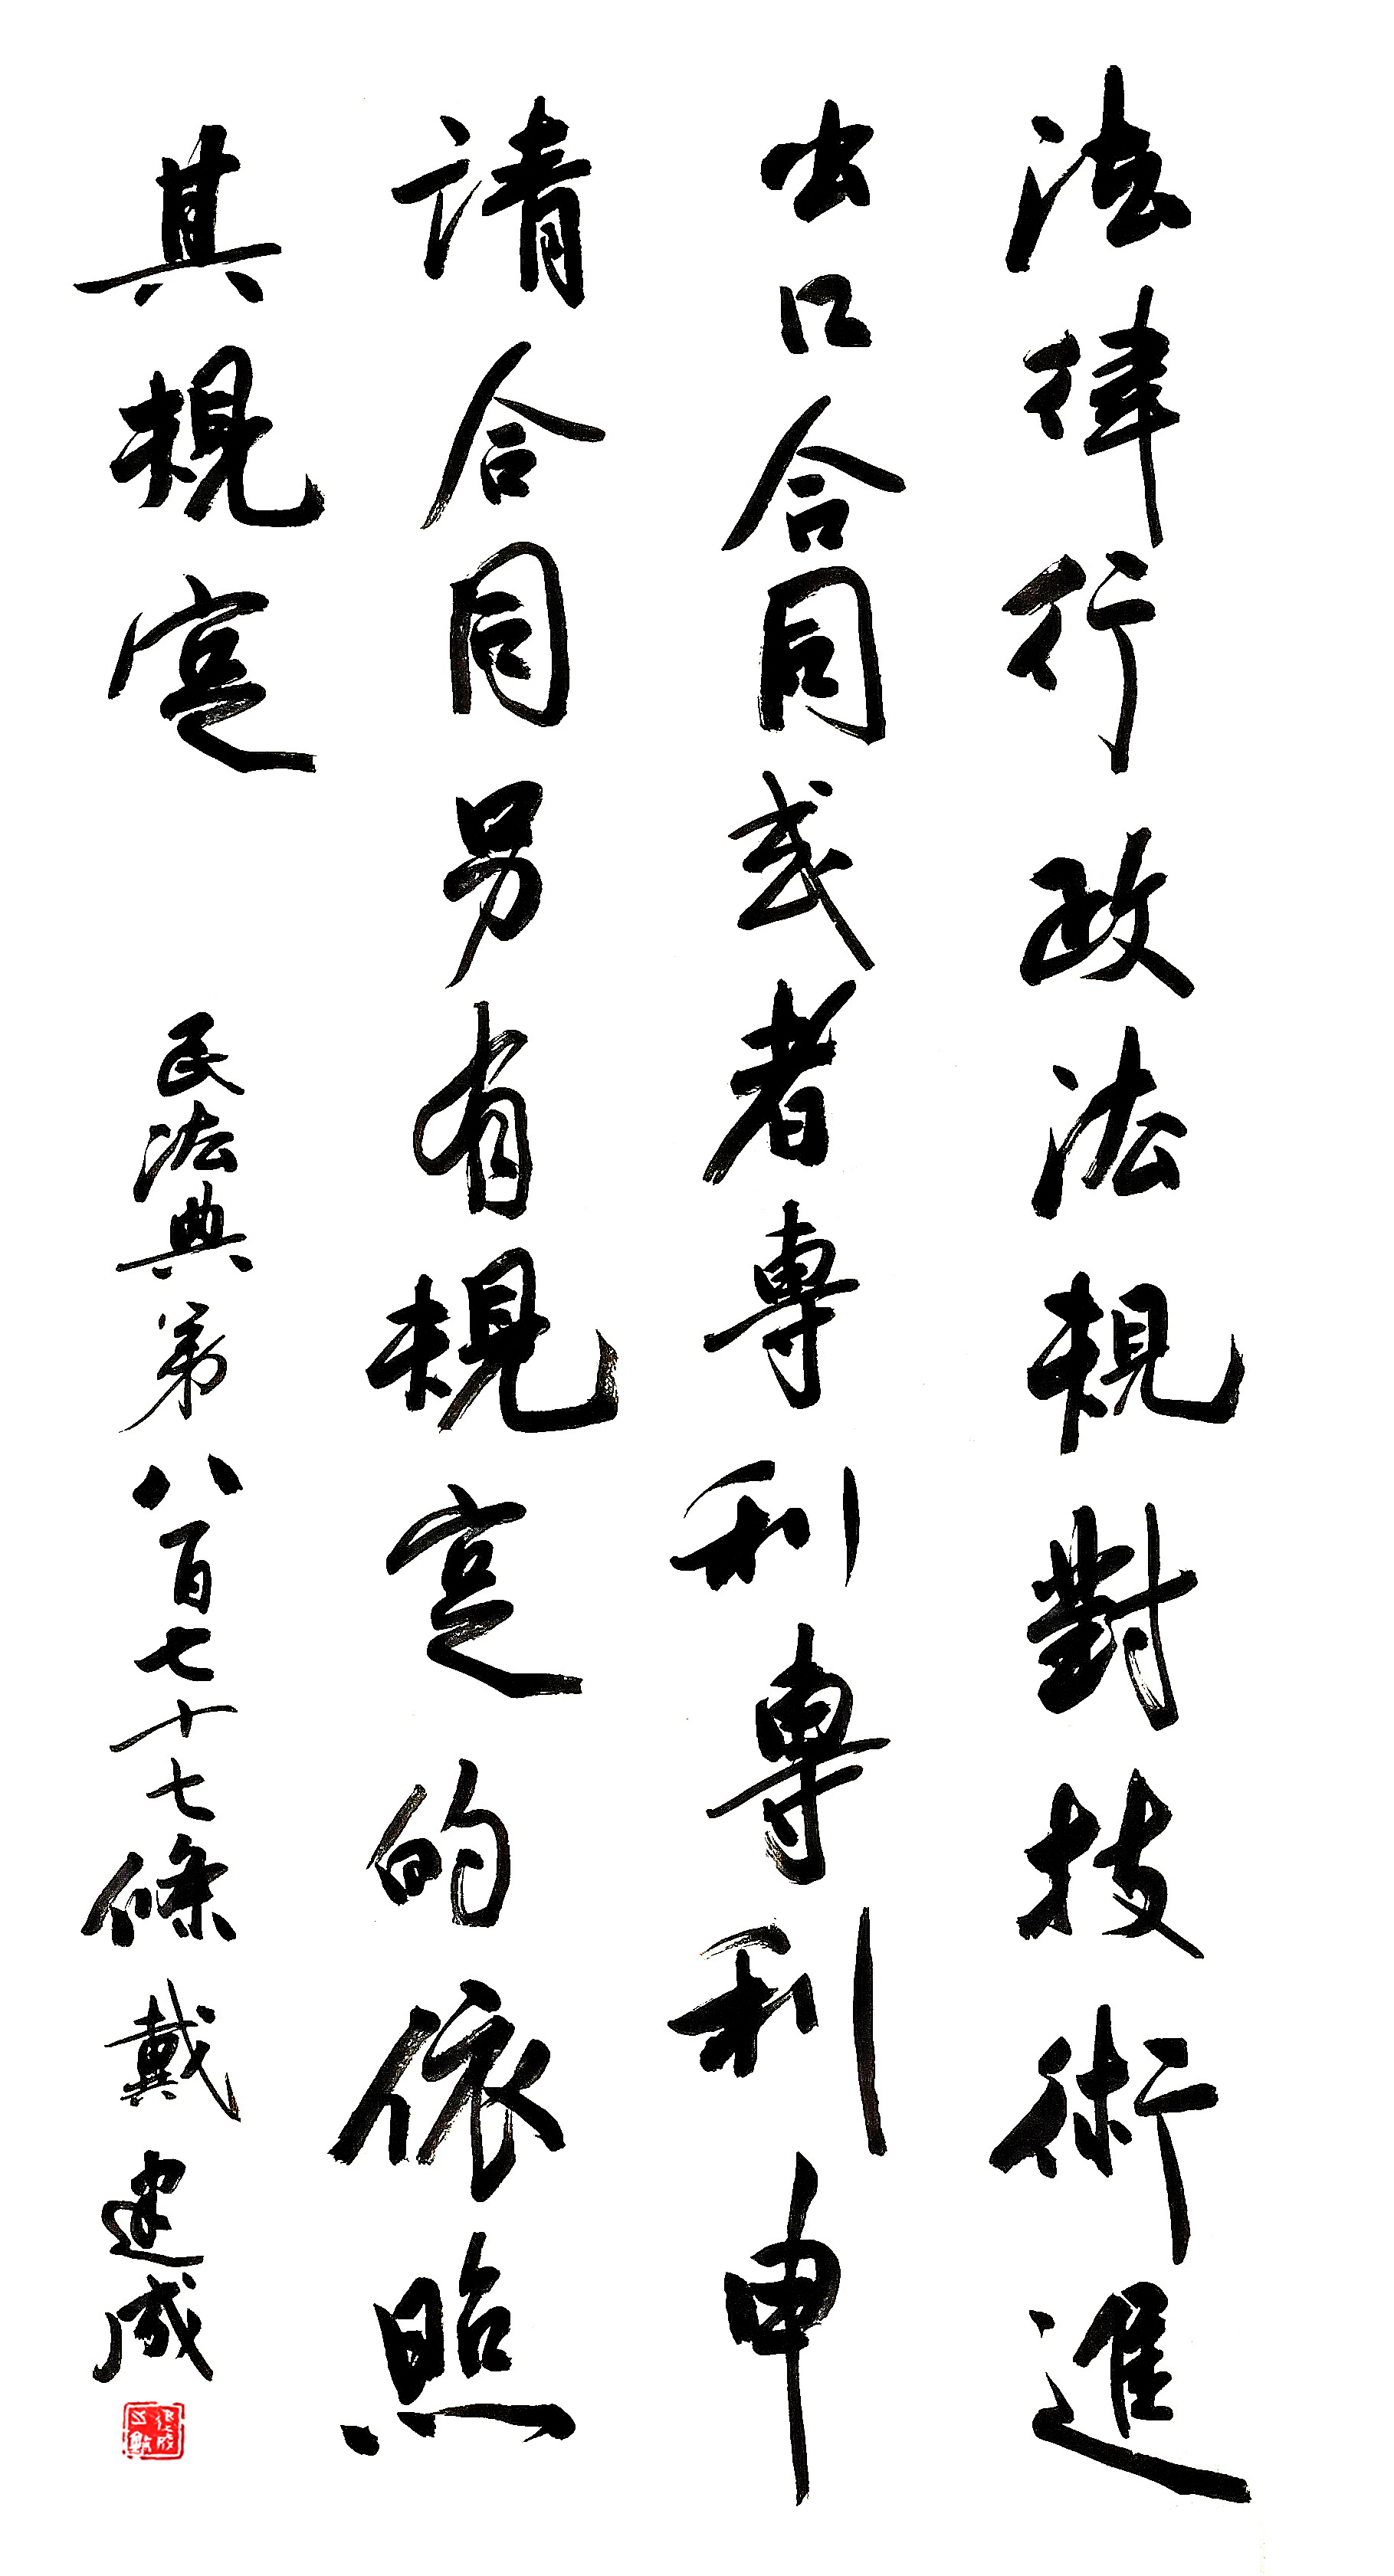 法律行政法規對技術進
出口合同或者專利專利申
請合同另有規定的依照
其規定
民法典第八百七十七條 戴建成